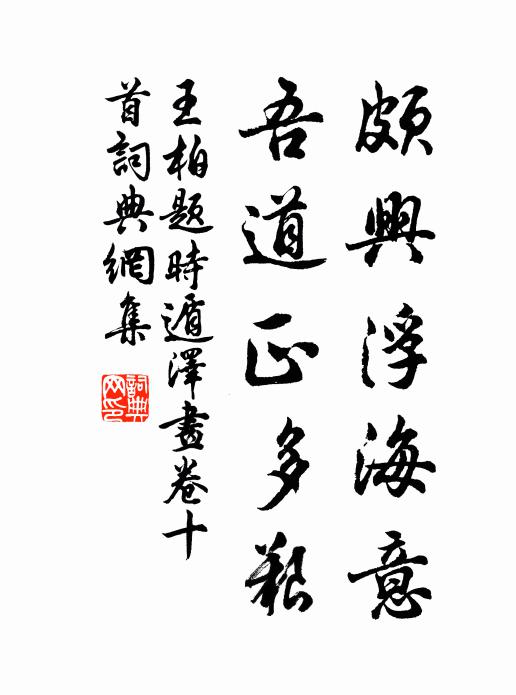 頗興浮海意
吾道正多艱
王柏題時遁澤畫卷十
首詞典網集
詞典
网印